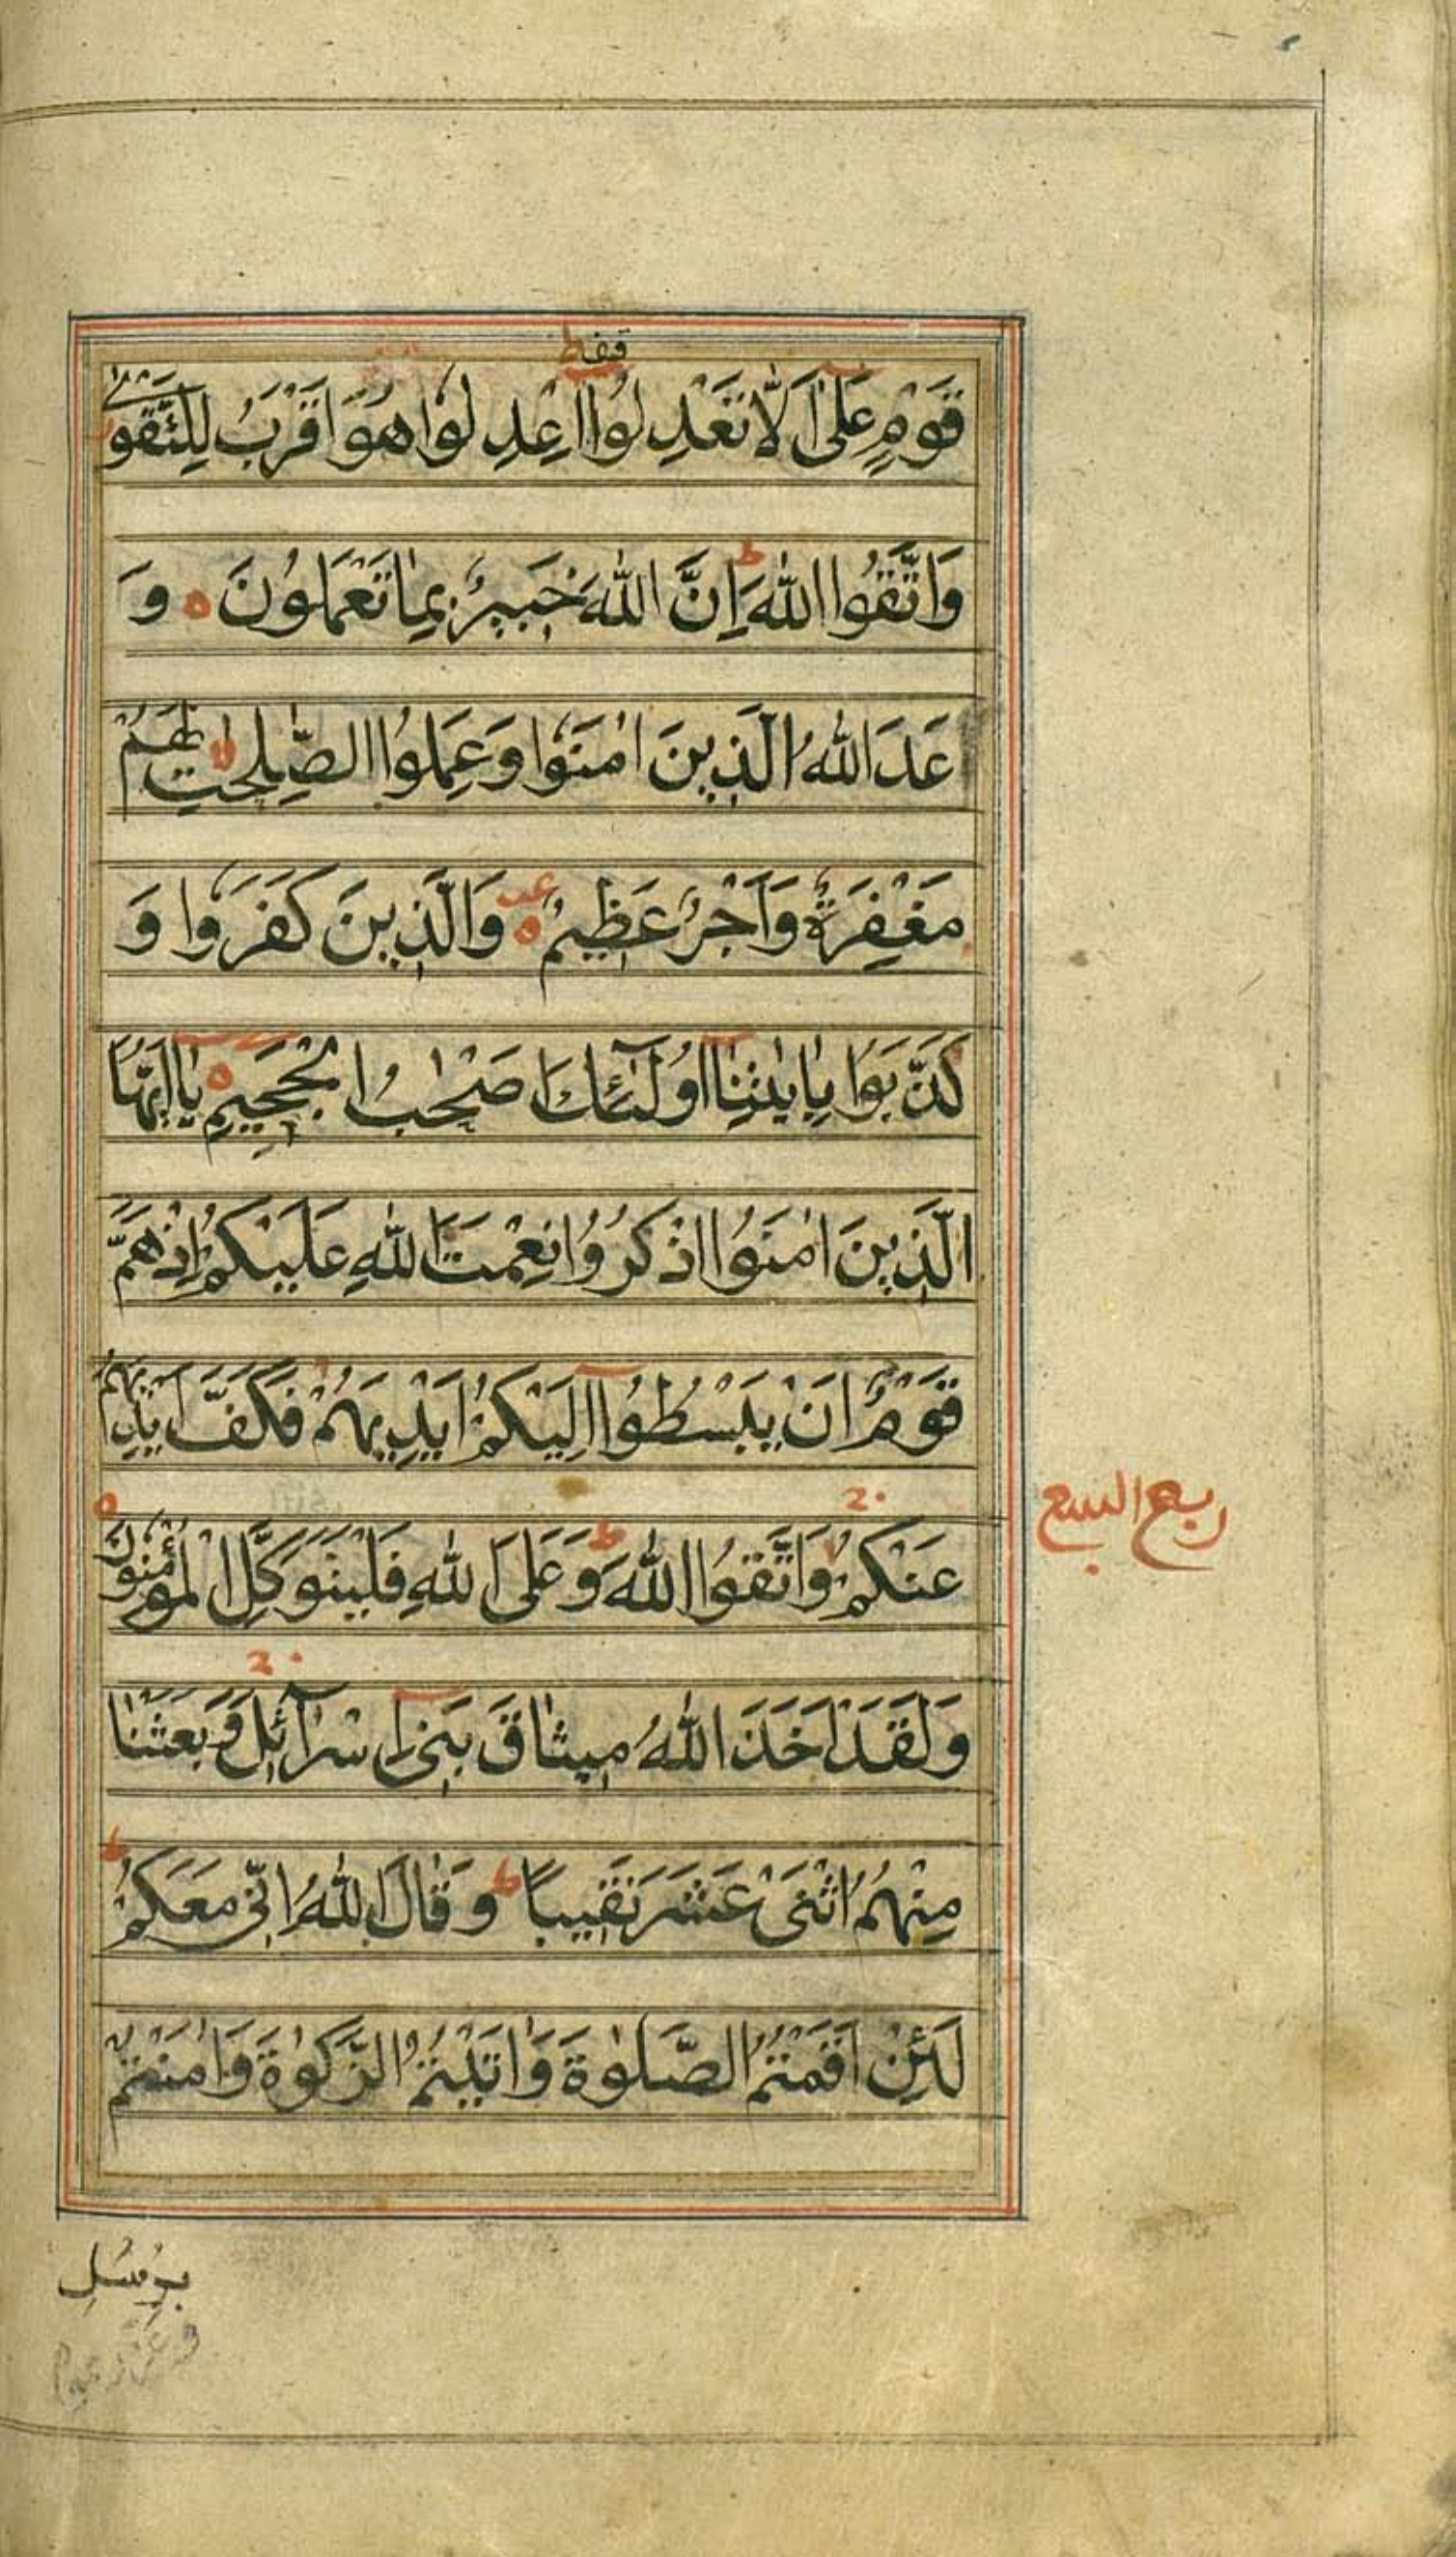 قف ط
قَوْمٍ عَلٰى اَلَّا تَعْدِلُوْا اِعْدِلُوْا هُوَ اَقْرَبُ لِلتَّقْوٰى
وَاتَّقُوا اللّٰهَ ط اِنَّ اللّٰهَ خَبِيْرٌ بِمَا تَعْمَلُوْنَ ه وَ
عَدَ اللّٰهُ الَّذِيْنَ اٰمَنُوْا وَعَمِلُوا الصّٰلِحٰتِ لا لَهُمْ
مَغْفِرَةٌ وَاَجْرٌ عَظِيْمٌ ه وَالَّذِيْنَ كَفَرُوْا وَ
كَذَّبُوْا بِاٰيٰتِنَا اُولٰٓئِكَ اَصْحٰبُ الْجَحِيْمِ ه يٰاَيُّهَا
الَّذِيْنَ اٰمَنُوا اذْكُرُوْا نِعْمَتَ اللّٰهِ عَلَيْكُمْ اِذْ هَمَّ
قَوْمٌ اَنْ يَبْسُطُوْا اِلَيْكُمْ اَيْدِيَهُمْ فَكَفَّ اَيْدِيَهُمْ
عَنْكُمْ وَاتَّقُوا اللّٰهَ ط وَعَلَى اللّٰهِ فَلْيَتَوَكَّلِ الْمُؤْمِنُوْنَ ه
ربع السبع
وَلَقَدْ اَخَذَ اللّٰهُ مِيْثَاقَ بَنِىْ اِسْرَآئِلَ وَبَعَثْنَا
مِنْهُمُ اثْنَىْ عَشَرَ نَقِيْبًا ط وَقَالَ اللّٰهُ اِنِّىْ مَعَكُمْ ط
لَئِنْ اَقَمْتُمُ الصَّلٰوةَ وَاٰتَيْتُمُ الزَّكٰوةَ وَاٰمَنْتُمْ
بِرُسُلِ